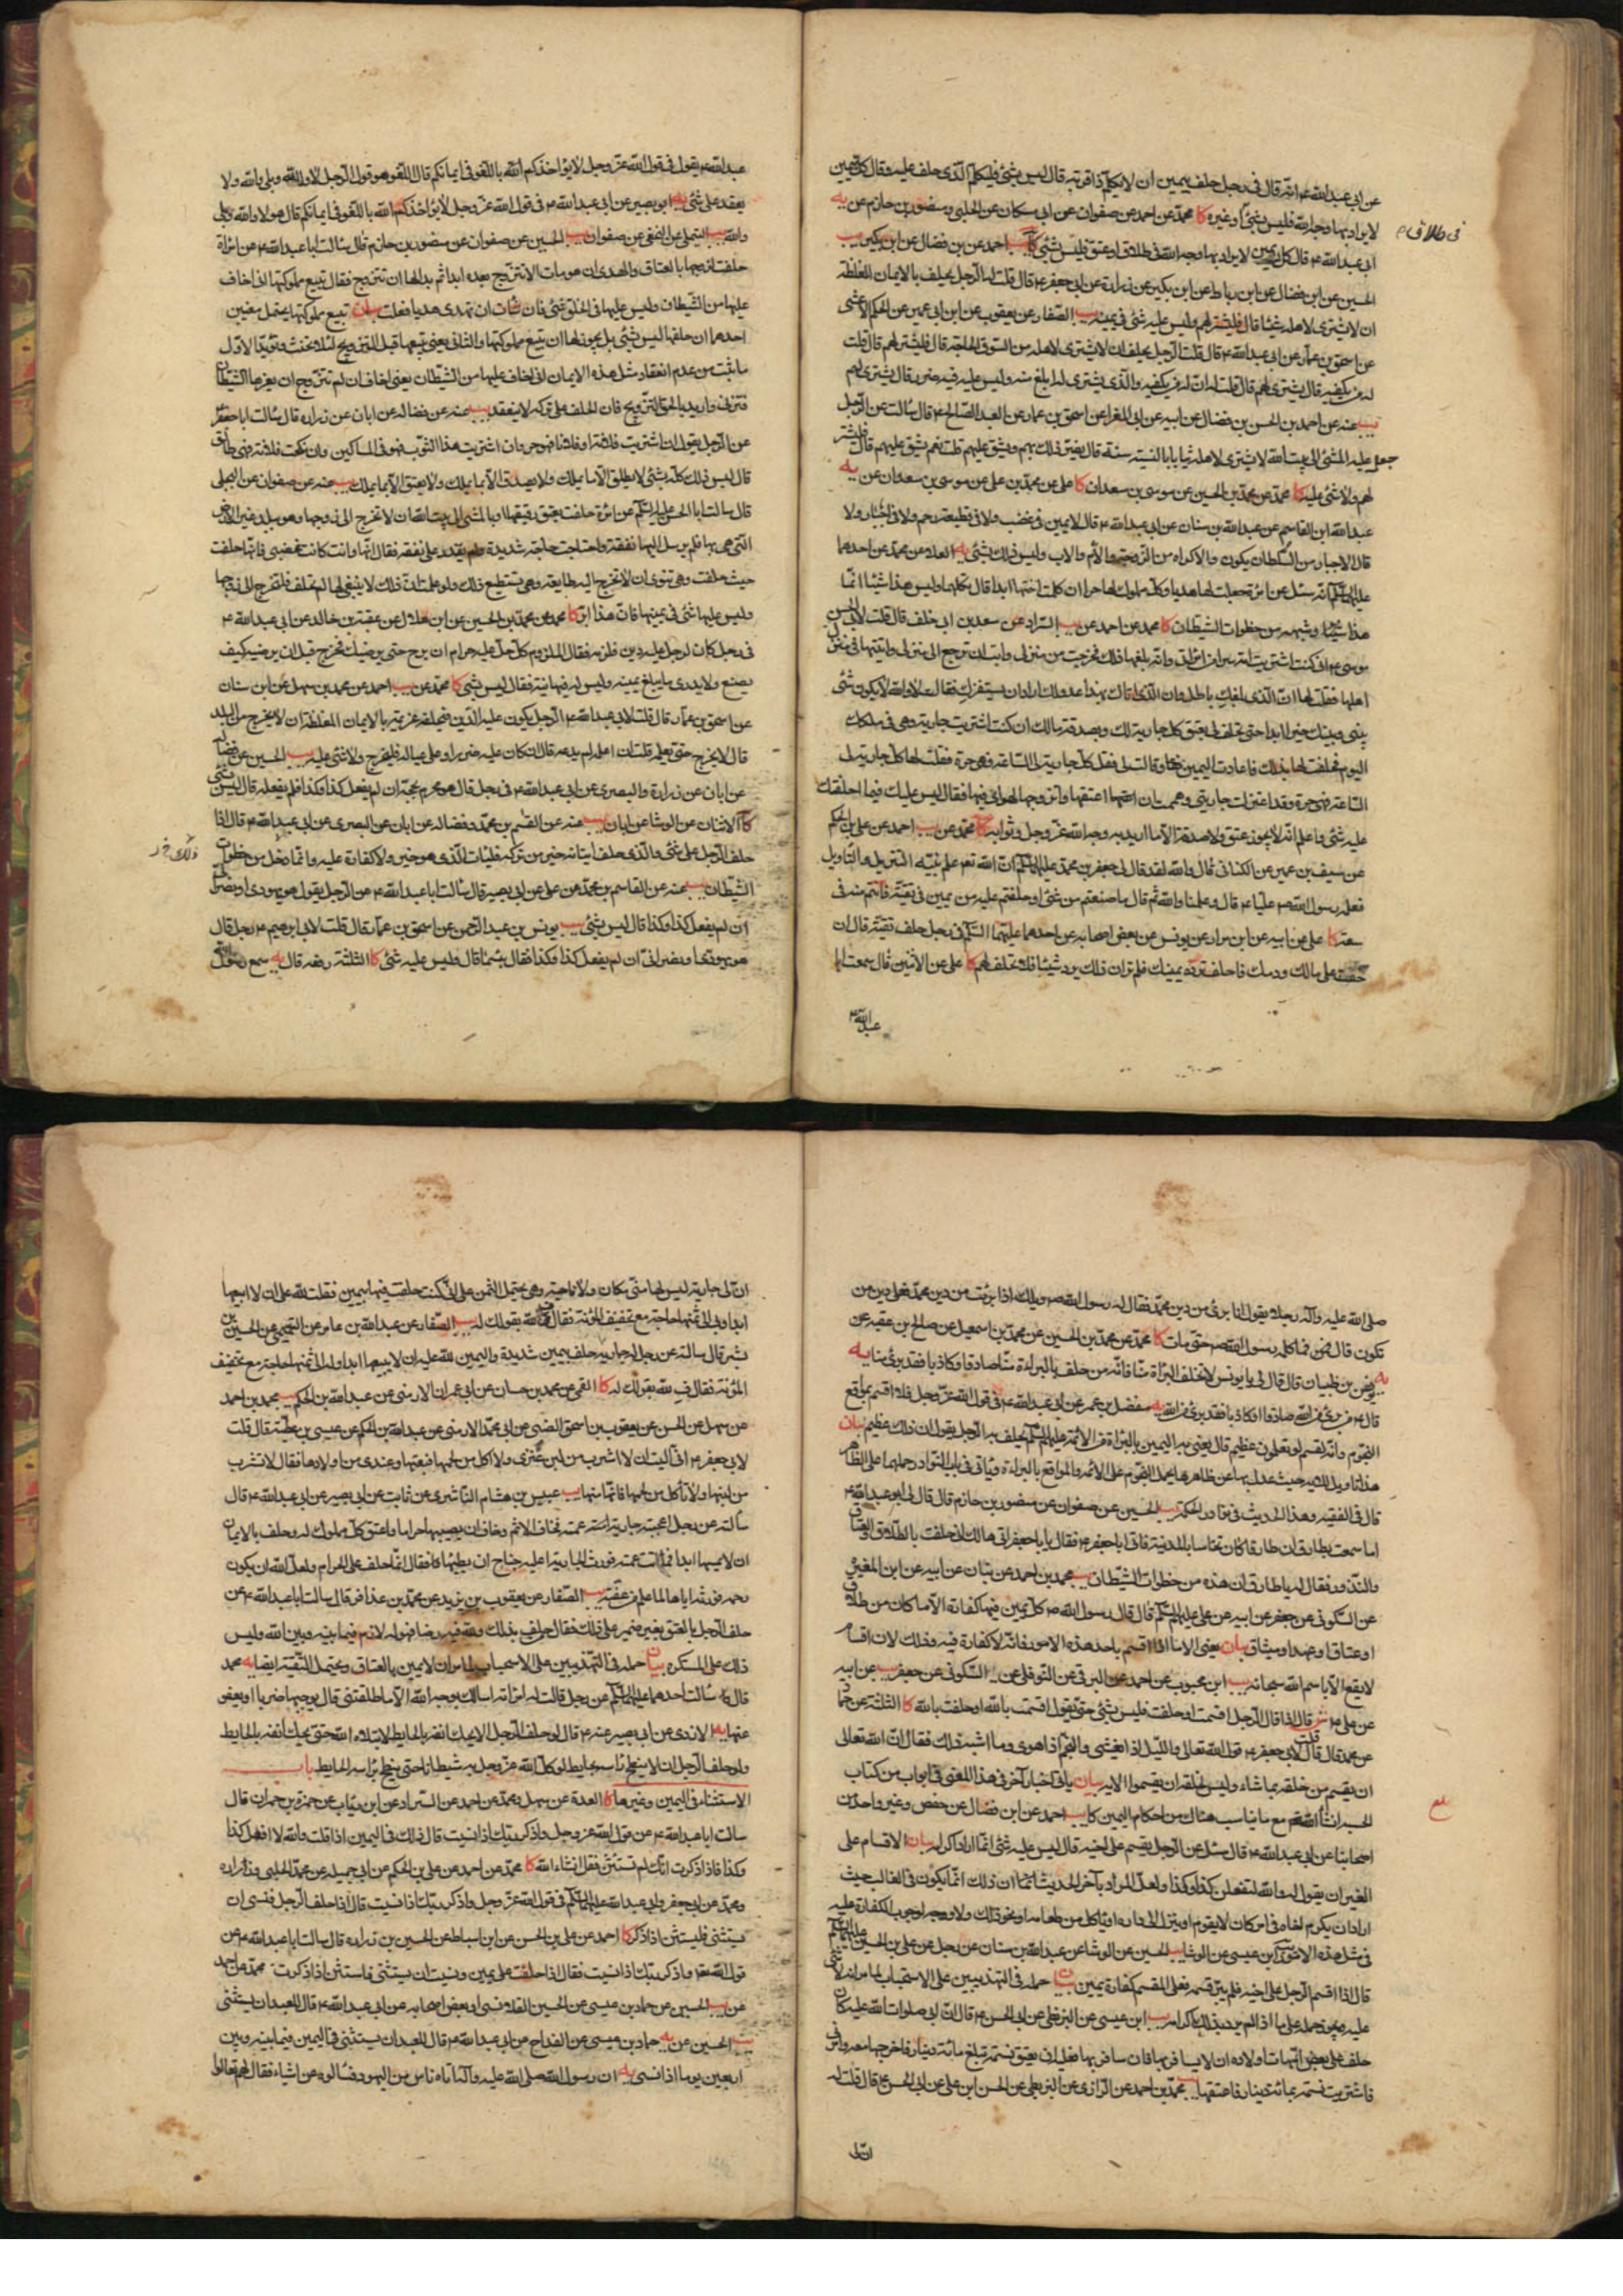 عن ابي عبد الله ع انه قال في رجل حلف بيمين ان لا يكلم ذا قرابة قال ليس بشئ فليكلم الذي حلف عليه وقال كل يمين
لا يراد بها وجه الله فليس بشئ او غيره كا محمد عن احمد عن صفوان عن ابن مسكان عن الحلبي و منصور بن حازم عن يه
في طلاق
ابي عبد الله ع قال كل يمين لا يراد بها وجه الله في طلاق او عتق فليس بشئ كا احمد عن بن فضال عن ابن بكير يب
الحسين عن ابن فضال عن ابن رباط عن ابن بكير عن زرارة عن ابي جعفر ع قال قلت له الرجل يحلف بالايمان المغلظة
ان لا يشتري لاهله شيئا قال فليشتر لهم وليس عليه شئ في يمينه يب الصفار عن يعقوب عن ابن ابي عمير عن الحكم الاعشى
عن اسحق بن عمار عن ابي عبد الله ع قال قلت الرجل يحلف ان لا يشتري لاهله من السوق الحاجة قال فليشتر لهم قال قلت
له من يكفيه قال يشتري لهم قال قلت له ان له من يكفيه والذي يشتري له ابلغ منه وليس عليه فيه ضرر قال يشتري لهم
يب عنه عن احمد بن الحسن بن فضال عن ابيه عن ابي المغرا عن اسحق بن عمار عن العبد الصالح ع قال سالت عن الرجل
جعل عليه المشي الى بيت الله لا يشتري لاهله ثيابا بالنسية سنة قال يضر ذلك بهم ويشق عليهم قلت نعم يشق عليهم قال فليشتر
لهم ولا شئ عليه كا محمد عن محمد بن الحسين عن موسى بن سعدان كا علي عن محمد بن علي عن موسى بن سعدان عن يه
عبد الله ابن القاسم عن عبد الله بن سنان عن ابي عبد الله ع قال لا يمين في غضب ولا في قطيعة رحم ولا في اجبار ولا
قال الاجبار من السلطان يكون والاكراه من الزوجة والام والاب وليس ذلك بشئ يه العلاء عن محمد عن احدهما
عليهما السلام انه سئل عن امرءة جعلت مالها هديا وكل مملوك لها حرا ان كلمت اختها ابدا قال تكلمها وليس هذا شيئا انما
هذا وشبهه من خطوات الشيطان كا محمد عن احمد عن يب السراد عن سعد بن ابي خلف قال قلت لابي الحسن
موسى ع اني كنت اشتريت امة سرا من امراتي وانه بلغها ذلك فخرجت من منزلي وابت ان ترجع الى منزلي واتيتها في منزل
اهلها فقلت لها ان الذي بلغك باطل وان الذي اتاك بهذا عدو لك اراد ان يستفزك فقالت لا والله لا يكون شئ
بيني وبينك خير ابدا حتى تحلف لي بعتق كل جارية لك وبصدقة مالك ان كنت اشتريت جارية وهي في ملكك
اليوم فحلفت لها بذلك فاعادت اليمين وقالت لي فقل كل جارية لي الساعة فهي حرة فقلت لها كل جارية لي
الساعة فهي حرة وقد اعتزلت جاريتي وهممت بان اعتقها واتزوجها لهواي فيها فقال ليس عليك فيما احلفتك
عليه شئ واعلم انه لا يجوز عتق ولا صدقة الا ما اريد به وجه الله عز وجل وثوابه كا محمد عن يب احمد عن علي بن الحكم
عن سيف بن عميرة عن الكناني قال والله لقد قال لي جعفر بن محمد عليهما السلم ان الله تعم علم نبيه التنزيل والتاويل
فعلمه رسول الله ص عليا ع قال وعلمنا والله ثم قال ما صنعتم من شئ او حلفتم عليه من يمين في تقية فانتم منه في
سعة كا علي عن ابيه عن ابن مرار عن يونس عن بعض اصحابه عن احدهما عليهما السلم في رجل حلف تقية قال ان
خفت على مالك ودمك فاحلف ترده بيمينك فلم تر ان ذلك يرد شيئا فلا تحلف لهم كا علي عن الاثنين قال سمعت ابا
عبد الله ع
عبد الله ع يقول في قول الله عز وجل لا يؤاخذكم الله باللغو في ايمانكم قال اللغو هو قول الرجل لا والله وبلى والله ولا
يعقد على شئ يه ابو بصير عن ابي عبد الله ع في قول الله عز وجل لا يؤاخذكم الله باللغو في ايمانكم قال هو لا والله وبلى
والله يب التيملي عن النخعي عن صفوان يب الحسين عن صفوان عن منصور بن حازم قال سالت ابا عبد الله ع عن امراة
حلفت لزوجها بالعتاق والهدي ان هو مات الا تتزوج بعده ابدا ثم بدا لها ان تتزوج فقال تبيع مملوكتها اني اخاف
عليها من الشيطان وليس عليها في الحق شئ فان شات ان تهدي هديا فعلت بيان تبيع مملوكتها يحتمل معنيين
احدهما ان حلفها ليس بشئ بل يجوز لها ان تبيع مملوكتها والثاني يعني تبيعها قبل التزويج لئلا يحنث ويؤيد الاول
ما ثبت من عدم انعقاد مثل هذه الايمان اني اخاف عليها من الشيطان يعني اخاف ان لم تتزوج ان يغرها الشيطان
فتزني واريد بالحق التزويج فان الحلف على تركه لا ينعقد يب عنه عن فضاله عن ابان عن زراره قال سالت ابا جعفر ع
عن الرجل يقول ان اشتريت فلانة او فلانا فهو حر وان اشتريت هذا الثوب فهو في المساكين وان نكحت فلانة فهي طالق
قال ليس ذلك كله بشئ لا يطلق الا ما يملك ولا يصدق الا بما يملك ولا يعتق الا بما يملك يب عنه عن صفوان عن البجلي
قال سالت ابا الحسن عليه السلم عن امرءة حلفت بعتق رقيقها او بالمشي الى بيت الله ان لا تخرج الى زوجها وهو ببلد غير الارض
التي هي بها فلم يرسل اليها نفقة واحتاجت حاجة شديدة ولم يقدر على نفقة فقال انها وانت كانت غضبى فانها حلفت
حيث حلفت وهي تنوي ان لا تخرج اليه طايعة وهي تستطيع ذلك ولو علمت ان ذلك لا ينبغي لها لم تحلف فلتخرج الى زوجها
وليس عليها شئ في يمينها فان هذا ابر كا محمد عن محمد بن الحسين عن ابن هلال عن عقبة بن خالد عن ابي عبد الله ع
في رجل كان لرجل عليه دين فلزمه فقال الملزوم كل حل عليه حرام ان برح حتى يرضيك فخرج قبل ان يرضيه كيف
يصنع ولا يدري ما يبلغ يمينه وليس له فيها نية فقال ليس بشئ كا محمد عن يب احمد عن محمد بن سهل عن ابن سنان
عن اسحق بن عمار قال قلت لابي عبد الله ع الرجل يكون عليه الدين فيحلفه غريمه بالايمان المغلظة ان لا يخرج من البلد
قال لا يخرج حتى يعلمه قلت ان اعلمه لم يدعه قال ان كان عليه ضررا وعلى عياله فليخرج ولا شئ عليه يب الحسين عن فضاله
عن ابان عن زرارة والبصري عن ابي عبد الله ع في رجل قال هو محرم بحجة ان لم يفعل كذا وكذا فلم يفعله قال ليس بشئ
كا الاثنان عن الوشا عن ابان يب عنه عن القسم بن محمد وفضاله عن ابان عن البصري عن ابي عبد الله ع قال اذا
حلف الرجل على شئ والذي حلف اتيانه خير من تركه فليات الذي هو خير ولا كفارة عليه وانما ذلك من خطوات
الشيطان يب عنه عن القاسم بن محمد عن علي عن ابي بصير قال سالت ابا عبد الله ع عن الرجل يقول هو يهودي او نصراني
ان لم يفعل كذا وكذا قال ليس بشئ يب يونس بن عبد الرحمن عن اسحق بن عمار قال قلت لابي ابرهيم ع رجل قال
هو يهودي او نصراني ان لم يفعل كذا وكذا فقال بئسما قال وليس عليه شئ كا الثلثة رفعه قال يه سمع رسول الله
صلى الله عليه وآله رجلا يقول انا برئ من دين محمد فقال له رسول الله ص ويلك اذا برئت من دين محمد فعلى دين من
تكون قال فما كلمه رسول الله ص حتى مات كا محمد عن محمد بن الحسين عن محمد بن اسمعيل عن صالح بن عقبه عن
يه يونس بن ظبيان قال قال لي يا يونس لا تحلف بالبراءة منا فانه من حلف بالبراءة منا صادقا او كاذبا فقد برئ منا يه
قال ع من برئ من الله صادقا او كاذبا فقد برئ من الله يه مفضل بن عمر عن ابي عبد الله ع في قول الله عز وجل فلا اقسم بمواقع
النجوم وانه لقسم لو تعلمون عظيم قال يعني به اليمين بالبراءة من الائمة عليهم السلم يحلف بها الرجل يقول ان ذلك عظيم بيان
قال في الفقيه وهذا الحديث في نوادر الحكمة يب الحسين عن صفوان عن منصور بن حازم قال قال لي ابو عبد الله ع
اما سمعت بطارق ان طارقا كان نخاسا بالمدينة فاتى ابا جعفر ع فقال يا ابا جعفر اني هالك اني حلفت بالطلاق والعتاق
والنذور فقال له يا طارق ان هذه من خطوات الشيطان يب محمد بن احمد عن بنان عن ابيه عن ابن المغيرة
عن السكوني عن جعفر عن ابيه عن علي عليهم السلم قال قال رسول الله ص كل يمين فيها كفارة الا ما كان من طلاق
او عتاق او عهد او ميثاق بيان يعني الا ما اذا اقسم باحد هذه الامور فانه لا كفارة فيه وذلك لان اقسام
لا يقع الا باسم الله سبحانه يب ابن محبوب عن احمد عن البرقي عن النوفلي عن السكوني عن جعفر عن ابيه
عن علي ع قال اذا قال الرجل اقسمت او حلفت فليس بشئ حتى يقول اقسمت بالله او حلفت بالله كا الثلثة عن حماد
عن محمد قال قلت لابي جعفر ع قول الله تعالى والليل اذا يغشى والنجم اذا هوى وما اشبه ذلك فقال ان الله تعالى
ان يقسم من خلقه بما شاء وليس لخلقه ان يقسموا الا به بيان ياتي اخبار آخر في هذا المعنى في ابواب من كتاب
الحسبة انشاء الله تعم مع ما يناسب هناك من احكام اليمين كا يب احمد عن ابن فضال عن حفص وغير واحد من
اصحابنا عن ابي عبد الله ع قال سئل عن الرجل يقسم على اخيه قال ليس عليه شئ انما اراد اكرامه بيان الاقسام على
الغير ان يقول له والله لتفعلن كذا وكذا ولعل المراد بآخر الحديث ان ذلك انما يكون في الغالب حيث
اراد ان يكرم اخاه في امر كان لا يقوم او ينزل الى داره او ياكل من طعامه او نحو ذلك ولا وجه لوجوب الكفارة عليه
في مثل هذه الامور يب ابن عيسى عن الوشا يب الحسين عن الوشا عن عبد الله بن سنان عن رجل عن علي بن الحسين عليهما السلم
قال اذا اقسم الرجل على اخيه فلم يبر قسمه فعلى المقسم كفارة يمين بيان حمله في التهذيبين على الاستحباب لما مر انه لا شئ
عليه ويجوز حمله على ما اذا لم يرد بذلك اكرامه يب ابن عيسى عن البزنطي عن ابي الحسن ع قال ان ابي صلوات الله عليه كان
حلف على بعض امهات اولاده ان لا يسافر بها فان سافر بها فعليه ان يعتق نسمة تبلغ مائة دينار فاخرجها معه وامرني
فاشتريت نسمة بمائة دينار فاعتقها يب محمد بن احمد عن الرازي عن البزنطي عن الحسن ابن علي عن ابي الحسن ع قال قلت له
ان لي
ان لي جارية ليس لها مني مكان ولا ناحية وهي تحتمل الثمن الا اني كنت حلفت فيها بيمين فقلت لله علي ان لا ابيعها
ابدا وبي الى ثمنها حاجة مع تخفيف المؤنة فقال ف لله بقولك له يب الصفار عن عبد الله بن عامر عن التميمي عن الحسين بن
بشر قال سالته عن رجل له جاريه حلف بيمين شديدة واليمين لله عليه ان لا يبيعها ابدا وله الى ثمنها حاجة مع تخفيف
المؤنة فقال ف لله بقولك له كا القمي عن محمد بن حسان عن ابي عمران الارمني عن عبد الله بن الحكم يب محمد بن احمد
عن سهل عن الحسن عن يعقوب بن اسحق الضبي عن ابي محمد الارمني عن عبد الله بن الحكم عن عيسى بن عطية قال قلت
لابي جعفر ع اني آليت ان لا اشرب من لبن عنزي ولا اكل من لحمها فبعتها وعندي من اولادها فقال لا تشرب
من لبنها ولا تاكل من لحمها فانها منها يب عبيس بن هشام الناشري عن ثابت عن ابي بصير عن ابي عبد الله ع قال
سالته عن رجل اعجبته جارية عمته فخاف الاثم وخاف ان يصيبها حراما واعتق كل مملوك له وحلف بالايمان
ان لا يمسها ابدا فماتت عمته فورث الجارية اعليه جناح ان يطاها فقال انما حلف على الحرام ولعل الله ان يكون
رحمه فورثه اياها لما علم من عفته يب الصفار عن يعقوب بن يزيد عن محمد بن عذافر قال سالت ابا عبد الله ع عن
ذلك على المستكره بيان حمله في التهذيبين على الاستحباب لما مر ان لا يمين بالعتاق ويحتمل التقية ايضا يه محمد
قال سالت احدهما عليهما السلم عن رجل قالت له امراته اسالك بوجه الله الا ما طلقتني قال يوجعها ضربا او يعفو
عنها يه الازدي عن ابي بصير عنه ع قال لو حلف الرجل الا يحك انفه بالحايط لابتلاه الله حتى يحك انفه بالحايط
ولو حلف الرجل ان لا ينطح راسه بحايط لوكل الله عز وجل به شيطانا حتى ينطح براسه الحايط باب
الاستثناء في اليمين وغيرها كا العدة عن سهل ومحمد عن احمد عن السراد عن ابن رئاب عن حمزة بن حمران قال
سالت ابا عبد الله ع عن قول الله عز وجل واذكر ربك اذا نسيت قال ذلك في اليمين اذا قلت والله لا افعل كذا
وكذا فاذا ذكرت انك لم تستثن فقل انشاء الله كا محمد عن احمد عن علي بن الحكم عن ابي جميله عن محمد الحلبي وزراره
ومحمد عن ابي جعفر وابي عبد الله عليهما السلم في قول الله عز وجل واذكر ربك اذا نسيت قال اذا حلف الرجل فنسي ان
يستثني فليستثن اذا ذكر كا احمد عن علي بن الحسن عن ابن اسباط عن الحسين بن زراره قال سالت ابا عبد الله ع عن
قول الله تعم واذكر ربك اذا نسيت فقال اذا حلفت على يمين ونسيت ان يستثني فاستثن اذا ذكرت محمد عن احمد
عن يب الحسين عن حماد بن عيسى عن الحسين القلانسي او بعض اصحابه عن ابي عبد الله ع قال للعبد ان يستثني
يب الحسين عن يه حماد بن عيسى عن القداح عن ابي عبد الله ع قال للعبد ان يستثني في اليمين فيما بينه وبين
اربعين يوما اذا نسي يه ان رسول الله صلى الله عليه وآله اتاه ناس من اليهود فسالوه عن اشياء فقال لهم تعالوا